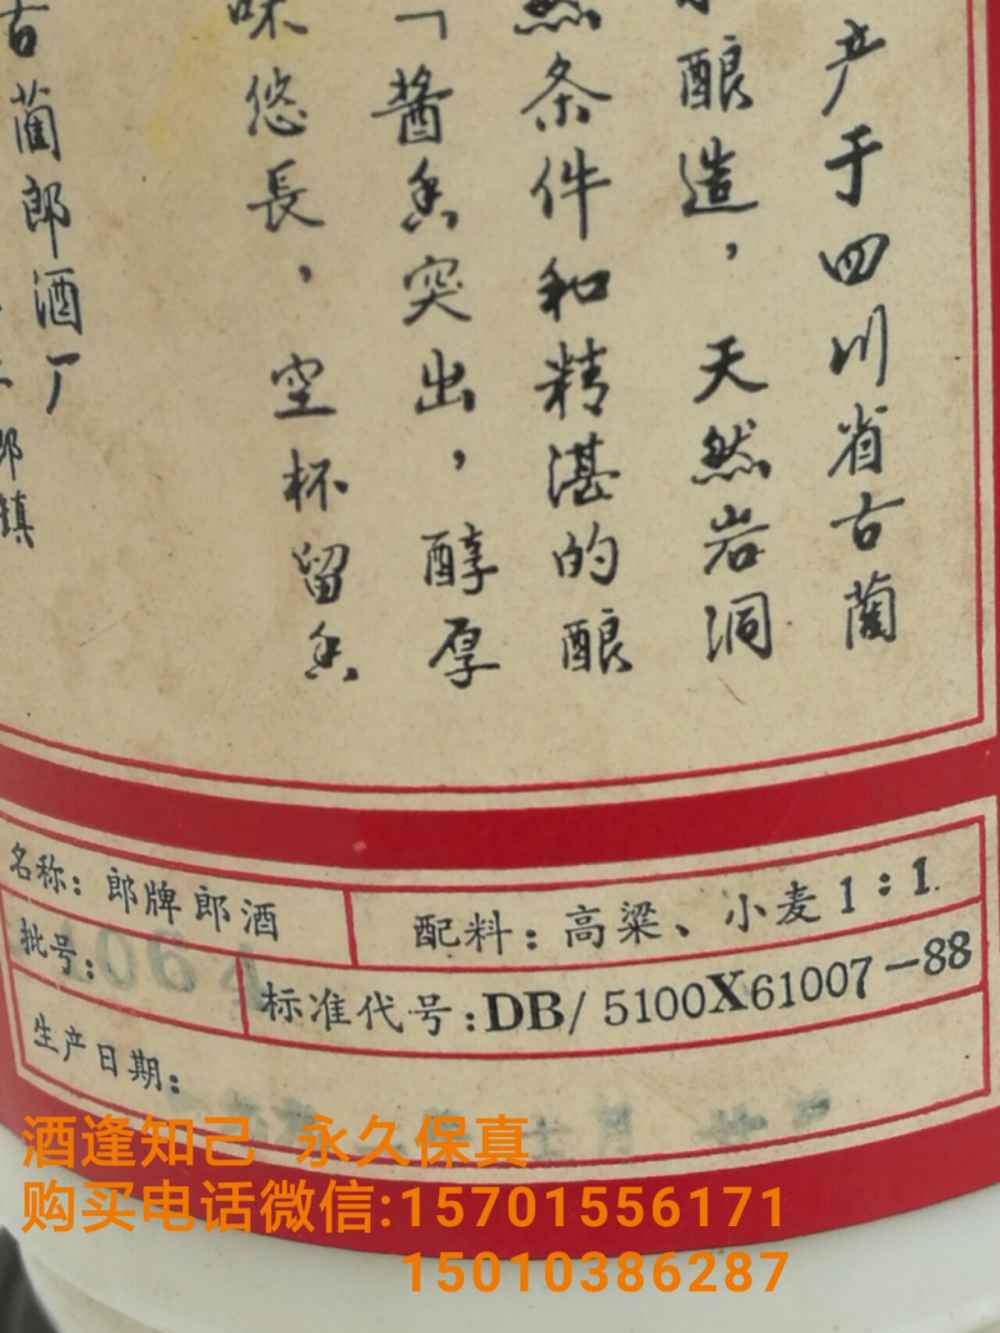 产于四川省古蔺
酿造，天然岩洞
然条件和精湛的酿
「酱香突出，醇厚
味悠長，空杯留香
古蔺郎酒厂
郎镇
名称：郎牌郎酒
配料：高粱、小麦1：1.
批号：
064
标准代号：DB/5100X61007-88
生产日期：
酒逢知己 永久保真
购买电话微信:15701556171
15010386287